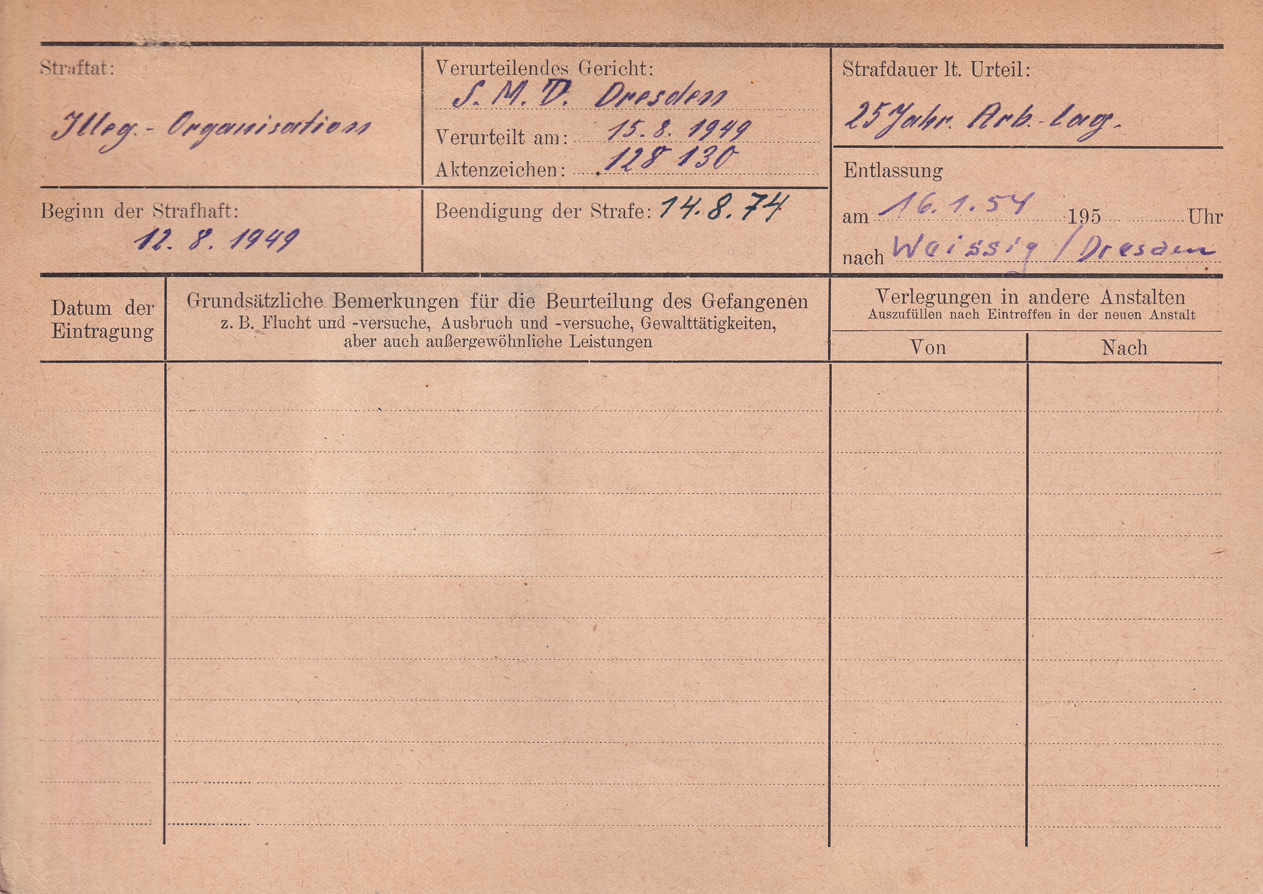 Straftat:
Illeg.- Organisation
Verurteilendes Gericht:
S. M. T. Dresden
Verurteilt am: 15. 8. 1949
Aktenzeichen: 128 130
Strafdauer lt. Urteil:
25 Jahr. Arb.-lag.
Entlassung
am 16.1.54 195 Uhr
nach Weissig / Dresden
Beginn der Strafhaft:
12. 8. 1949
Beendigung der Strafe: 14.8.74
Datum der
Eintragung
Grundsätzliche Bemerkungen für die Beurteilung des Gefangenen
z. B. Flucht und -versuche, Ausbruch und -versuche, Gewalttätigkeiten,
aber auch außergewöhnliche Leistungen
Verlegungen in andere Anstalten
Auszufüllen nach Eintreffen in der neuen Anstalt
Von
Nach